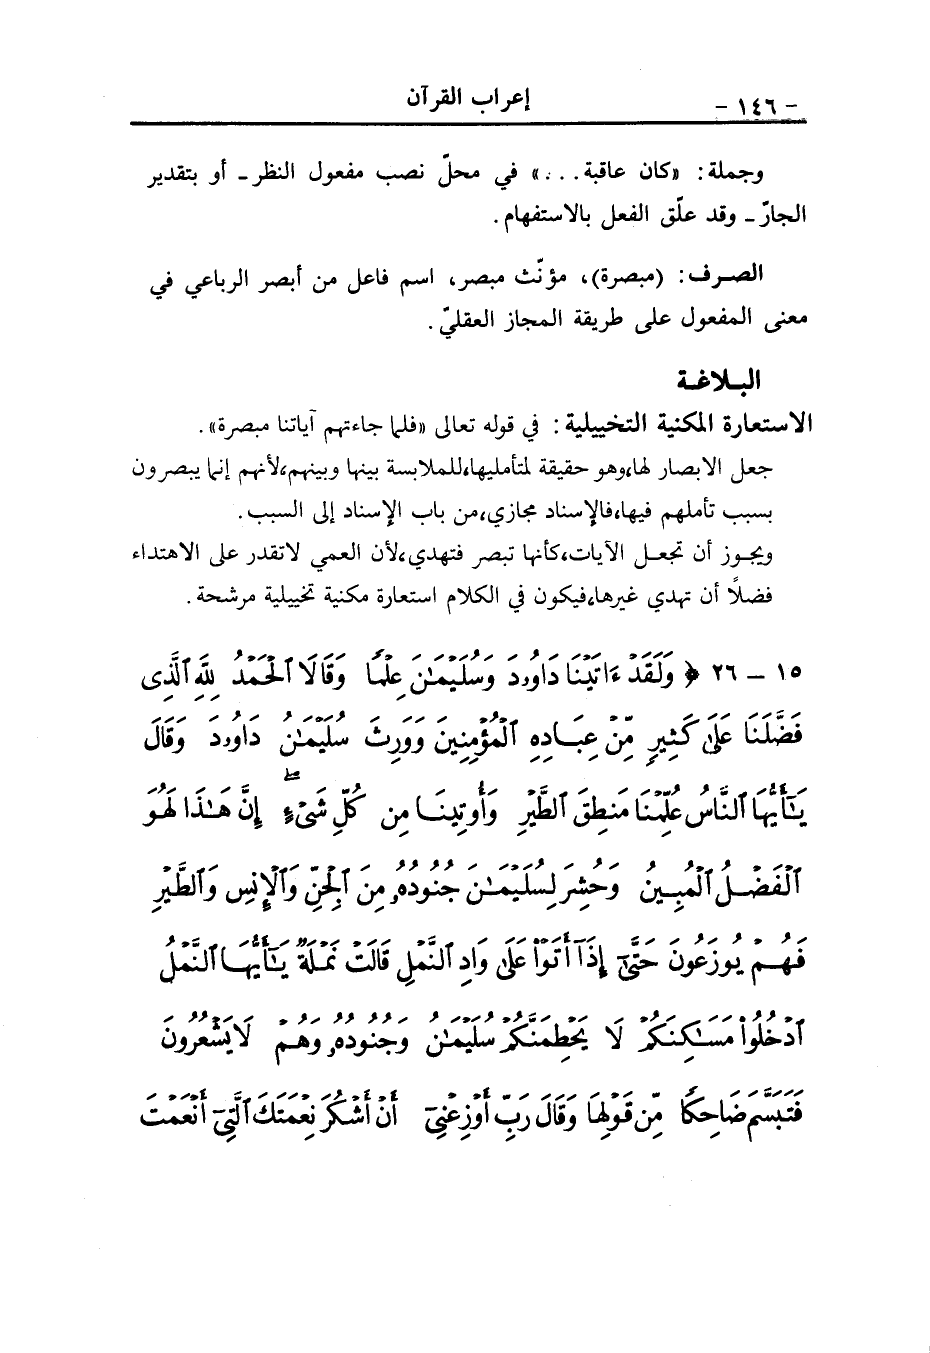 إعراب القرآن
- ١٤٦ -
وجملة: «كان عاقبة . . .» في محلّ نصب مفعول النظر ـ أو بتقدير
الجارّ ـ وقد علّق الفعل بالاستفهام.
الصرف: (مبصرة)، مؤنّث مبصر، اسم فاعل من أبصر الرباعي في
معنى المفعول على طريقة المجاز العقليّ.
البلاغة
الاستعارة المكنية التخييلية: في قوله تعالى «فلما جاءتهم آياتنا مبصرة».
جعل الابصار لها،وهو حقيقة لمتأمليها،للملابسة بينها وبينهم،لأنهم إنما يبصرون
بسبب تأملهم فيها،فالإسناد مجازي،من باب الإسناد إلى السبب.
ويجوز أن تجعل الآيات،كأنها تبصر فتهدي،لأن العمي لاتقدر على الاهتداء
فضلًا أن تهدي غيرها،فيكون في الكلام استعارة مكنية تخييلية مرشحة.
١٥ ـ ٢٦ ﴿ وَلَقَدْ ءَاتَيْنَا دَاوُۥدَ وَسُلَيْمَٰنَ عِلْمًا وَقَالَا ٱلْحَمْدُ لِلَّهِ ٱلَّذِى
فَضَّلَنَا عَلَىٰ كَثِيرٍ مِّنْ عِبَادِهِ ٱلْمُؤْمِنِينَ وَوَرِثَ سُلَيْمَٰنُ دَاوُۥدَ وَقَالَ
يَٰٓأَيُّهَا ٱلنَّاسُ عُلِّمْنَا مَنطِقَ ٱلطَّيْرِ وَأُوتِينَا مِن كُلِّ شَىْءٍ ۖ إِنَّ هَٰذَا لَهُوَ
ٱلْفَضْلُ ٱلْمُبِينُ وَحُشِرَ لِسُلَيْمَٰنَ جُنُودُهُۥ مِنَ ٱلْجِنِّ وَٱلْإِنسِ وَٱلطَّيْرِ
فَهُمْ يُوزَعُونَ حَتَّىٰٓ إِذَآ أَتَوْا۟ عَلَىٰ وَادِ ٱلنَّمْلِ قَالَتْ نَمْلَةٌ يَٰٓأَيُّهَا ٱلنَّمْلُ
ٱدْخُلُوا۟ مَسَٰكِنَكُمْ لَا يَحْطِمَنَّكُمْ سُلَيْمَٰنُ وَجُنُودُهُۥ وَهُمْ لَا يَشْعُرُونَ
فَتَبَسَّمَ ضَاحِكًا مِّن قَوْلِهَا وَقَالَ رَبِّ أَوْزِعْنِىٓ أَنْ أَشْكُرَ نِعْمَتَكَ ٱلَّتِىٓ أَنْعَمْتَ